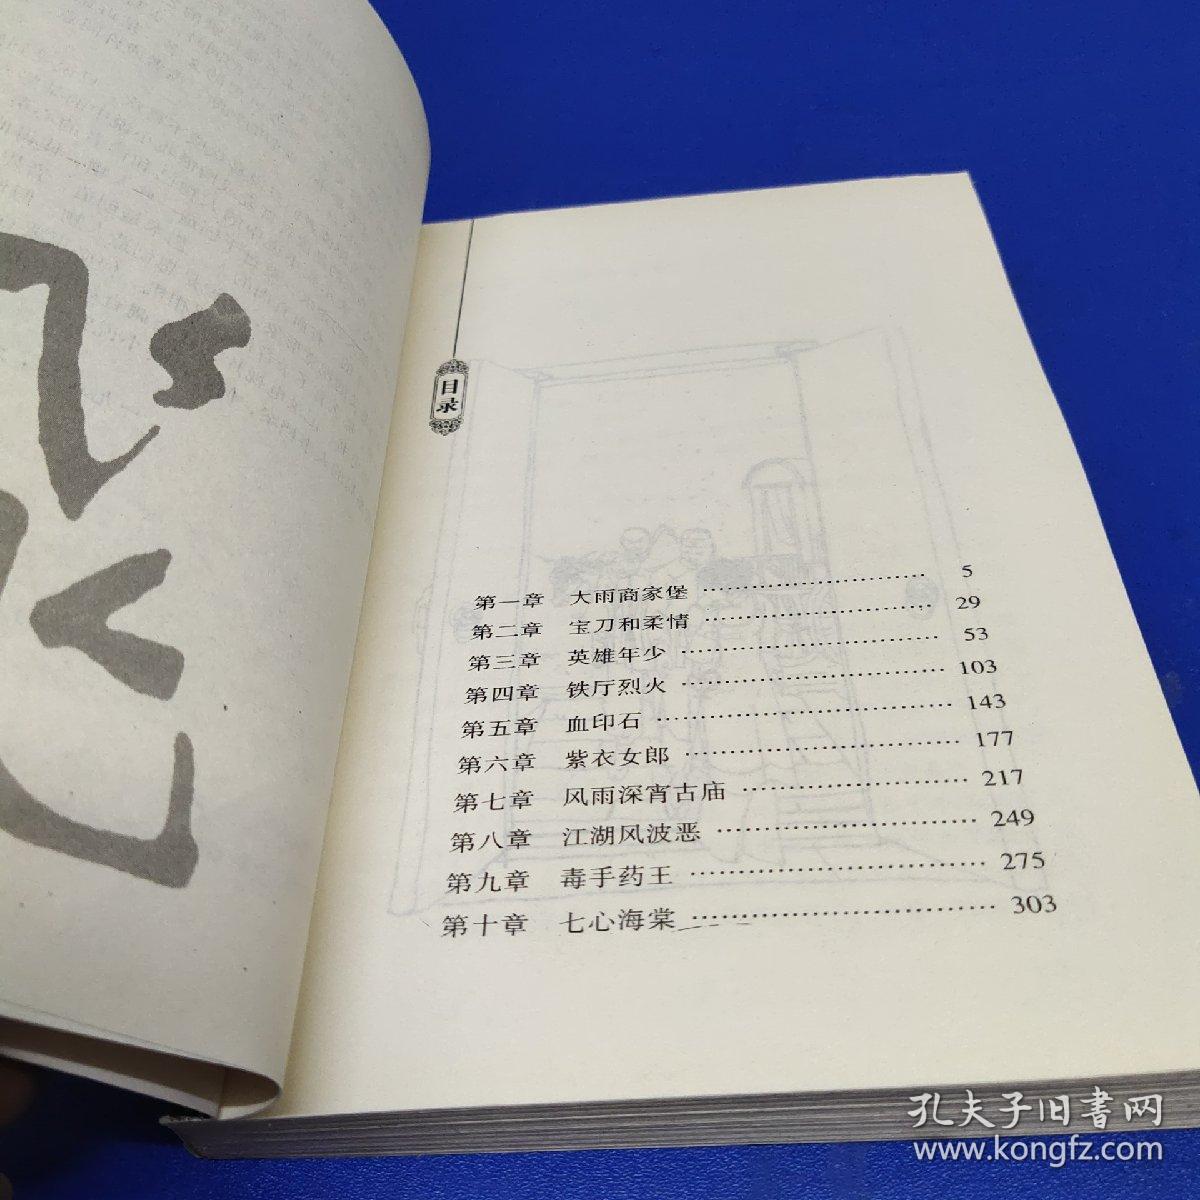 目录
第一章 大雨商家堡 ……………………… 5
第二章 宝刀和柔情 ……………………… 29
第三章 英雄年少 ……………………… 53
第四章 铁厅烈火 ……………………… 103
第五章 血印石 ……………………… 143
第六章 紫衣女郎 ……………………… 177
第七章 风雨深宵古庙 ……………………… 217
第八章 江湖风波恶 ……………………… 249
第九章 毒手药王 ……………………… 275
第十章 七心海棠 ……………………… 303
孔夫子旧书网
www.kongfz.com